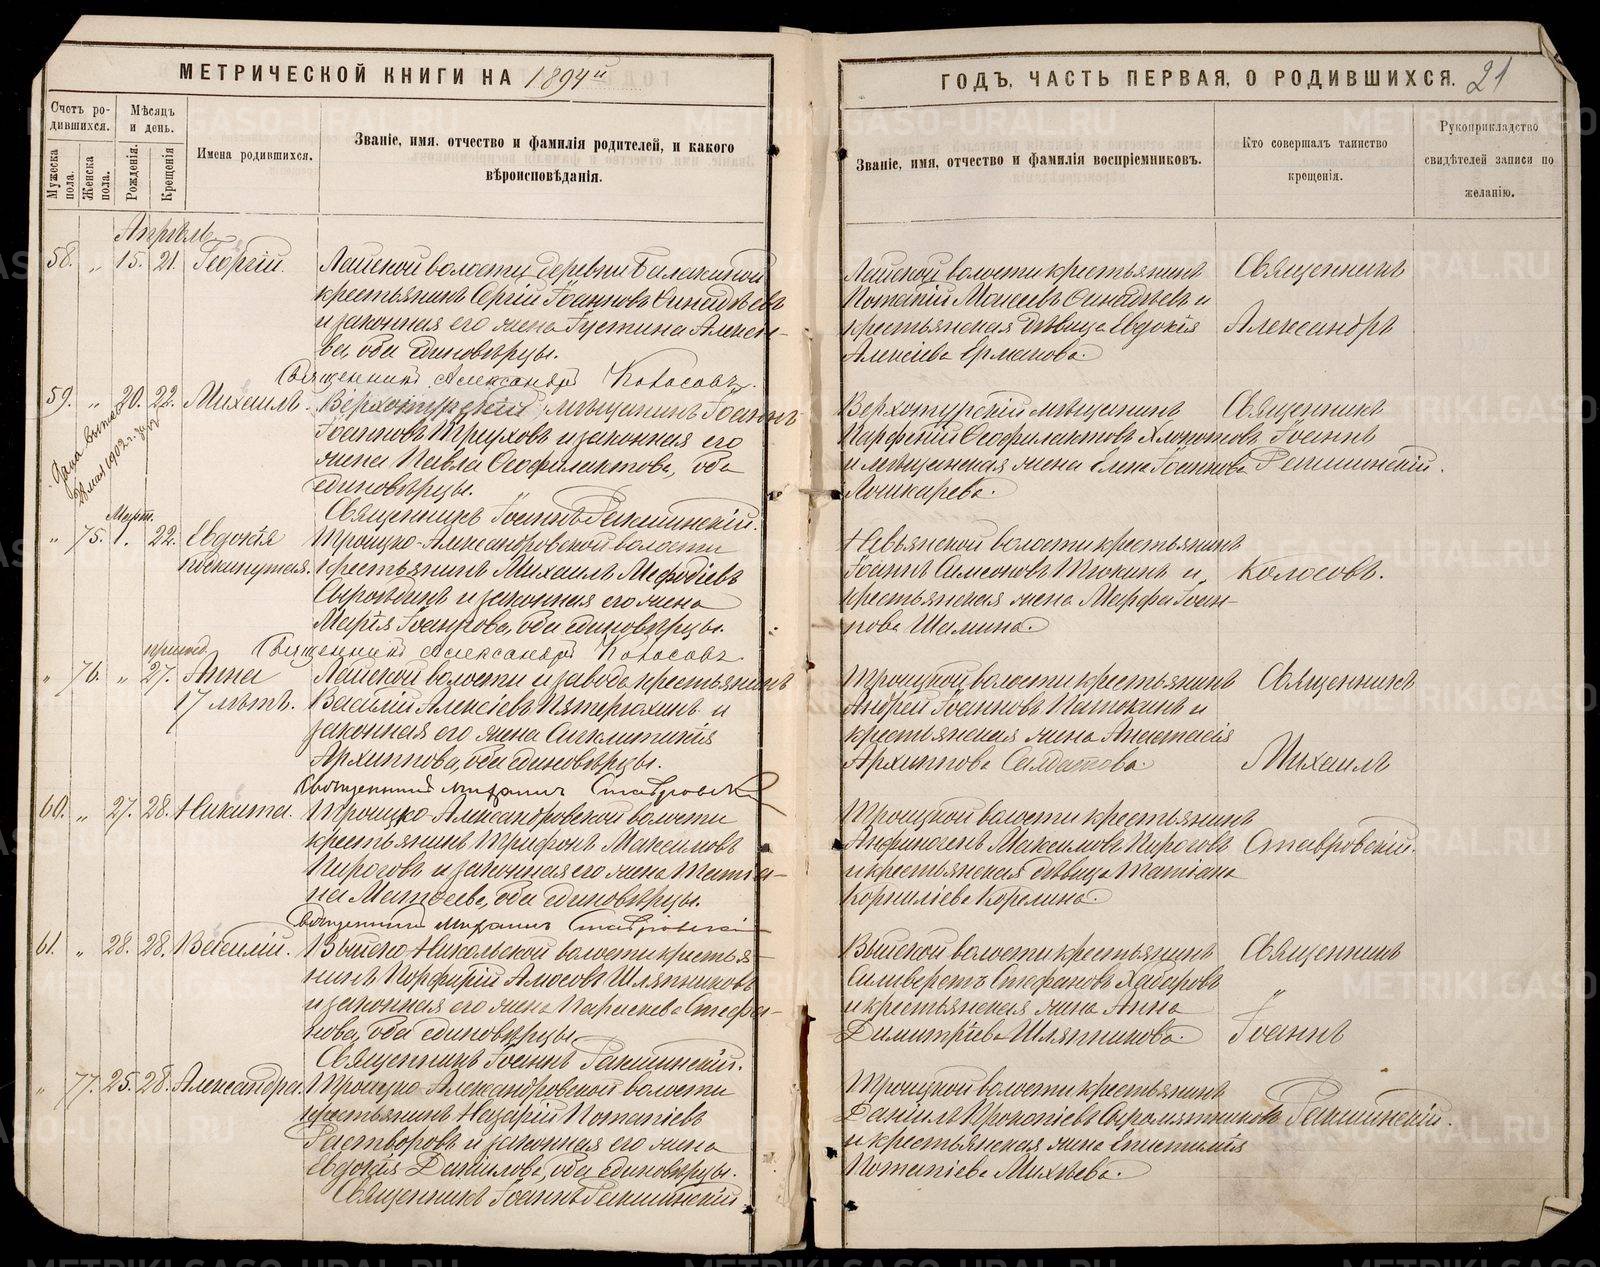 МЕТРИЧЕСКОЙ КНИГИ НА 1894й
Счетъ ро-
дившихся.
Мужеска пола.
Женска пола.
Мѣсяцъ
и день.
Рожденія.
Крещенія
Имена родившихся.
Званіе, имя, отчество и фамилія родителей, и какого
вѣроисповѣданія.
Апрѣль
58. „ 15. 21. Георгій. Лайской волости деревни Балакиной
крестьянинъ Сергій Іоанновъ
и законная его жена Алексѣе-
ва, оба единовѣрцы.
Священникъ Александръ Колосовъ.
59. „ 20. 22. Михаилъ. Верхотурскій мѣщанинъ Іоаннъ
Іоанновъ Тряуховъ и законная его
жена Павла Ѳеофилактова, оба
единовѣрцы.
Священникъ Іоаннъ
Мартъ.
„ 75. 1. 22. Евдокія Троицко-Александровской волости
покинутая. крестьянинъ Михаилъ Меѳодіевъ
и законная его жена
Марія Іоаннова, оба единовѣрцы.
Священникъ Александръ Колосовъ.
„ 76. „ 27. Анна Лайской волости и завода крестьянинъ
17 лѣтъ. Василій Алексіевъ и
законная его жена Синклитикія
Архиппова, оба единовѣрцы.
Священникъ Михаилъ Ставровскій
60. „ 27. 28. Никита. Троицко-Александровской волости
крестьянинъ Трифонъ Максимовъ
Пироговъ и законная его жена Татіа-
на Матѳеева, оба единовѣрцы.
Священникъ Михаилъ Ставровскій
61. „ 28. 28. Василій. Выйско-Никольской волости крестья-
нинъ Порфирій Амосовъ Шляпниковъ
и законная его жена Параскева Стефа-
нова, оба единовѣрцы.
Священникъ Іоаннъ
„ 77. 25. 28. Александра. Троицко-Александровской волости
крестьянинъ Назарій Потапіевъ
Растворовъ и законная его жена
Евдокія Даніилова, оба единовѣрцы.
Священникъ Іоаннъ
ГОДЪ, ЧАСТЬ ПЕРВАЯ, О РОДИВШИХСЯ. 21
Званіе, имя, отчество и фамилія воспріемниковъ.
Кто совершалъ таинство
крещенія.
Рукоприкладство
свидѣтелей записи по
желанію.
Лайской волости крестьянинъ Священникъ
Моисеевъ и
крестьянская дѣвица Евдокія Александръ
Алексіева Ермакова.
Верхотурскій мѣщанинъ Священникъ
Парфеній Ѳеофилактовъ Хлопотовъ Іоаннъ
и мѣщанская жена Елена Іоаннова
Лошкарева.
Невьянской волости крестьянинъ
Іоаннъ Симеоновъ Тюкинъ и Колосовъ.
крестьянская жена Марфа Іоан-
нова Шалина.
Троицкой волости крестьянинъ Священникъ
Андрей Іоанновъ Патокинъ и
крестьянская жена Анастасія
Архиппова Салдатова. Михаилъ
Троицкой волости крестьянинъ
Анфиногенъ Максимовъ Пироговъ Ставровскій.
и крестьянская дѣвица Татіана
Корниліева Корелина.
Выйской волости крестьянинъ Священникъ
Силиверстъ Стефановъ Хабаровъ „
и крестьянская жена Анна
Димитріева Шляпникова. Іоаннъ
Троицкой волости крестьянинъ
Даніилъ Прокопіевъ Сыромятниковъ
и крестьянская жена Епистимія
Потапіева Михѣева.
METRIKI.GASO-URAL.RU